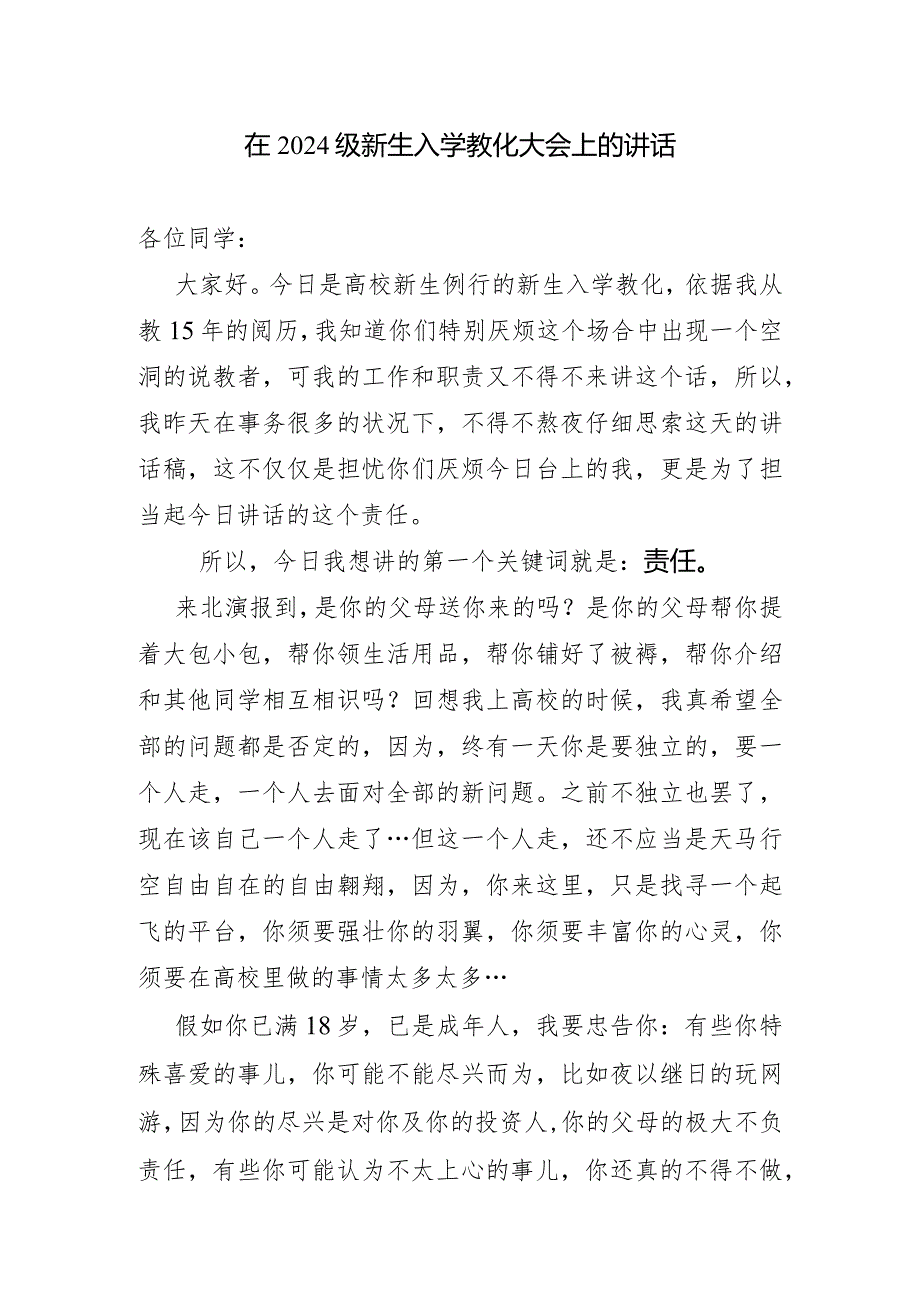 在 2024 级新生入学教化大会上的讲话
各位同学：
大家好。今日是高校新生例行的新生入学教化，依据我从
教 15 年的阅历，我知道你们特别厌烦这个场合中出现一个空
洞的说教者，可我的工作和职责又不得不来讲这个话，所以，
我昨天在事务很多的状况下，不得不熬夜仔细思索这天的讲
话稿，这不仅仅是担忧你们厌烦今日台上的我，更是为了担
当起今日讲话的这个责任。
所以，今日我想讲的第一个关键词就是：责任。
来北演报到，是你的父母送你来的吗？是你的父母帮你提
着大包小包，帮你领生活用品，帮你铺好了被褥，帮你介绍
和其他同学相互相识吗？回想我上高校的时候，我真希望全
部的问题都是否定的，因为，终有一天你是要独立的，要一
个人走，一个人去面对全部的新问题。之前不独立也罢了，
现在该自己一个人走了…但这一个人走，还不应当是天马行
空自由自在的自由翱翔，因为，你来这里，只是找寻一个起
飞的平台，你须要强壮你的羽翼，你须要丰富你的心灵，你
须要在高校里做的事情太多太多…
假如你已满 18 岁，已是成年人，我要忠告你：有些你特
殊喜爱的事儿，你可能不能尽兴而为，比如夜以继日的玩网
游，因为你的尽兴是对你及你的投资人,你的父母的极大不负
责任，有些你可能认为不太上心的事儿，你还真的不得不做，